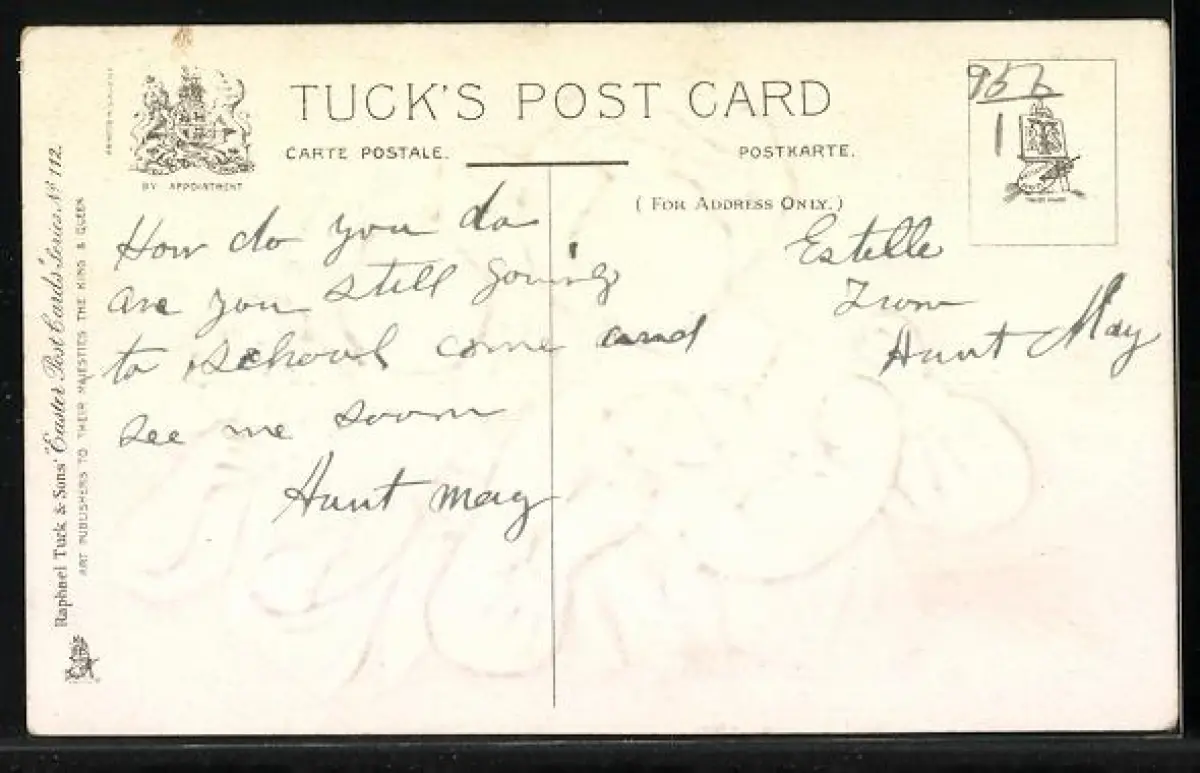 TUCK'S POST CARD
CARTE POSTALE.
POSTKARTE.
BY APPOINTMENT
( FOR ADDRESS ONLY. )
How do you do
are you still going
to school come and
see me soon
Aunt May
Estelle
From
Aunt May
952
1
Raphael Tuck & Sons' "Easter" Post Cards" Series No 112.
ART PUBLISHERS TO THEIR MAJESTIES THE KING & QUEEN